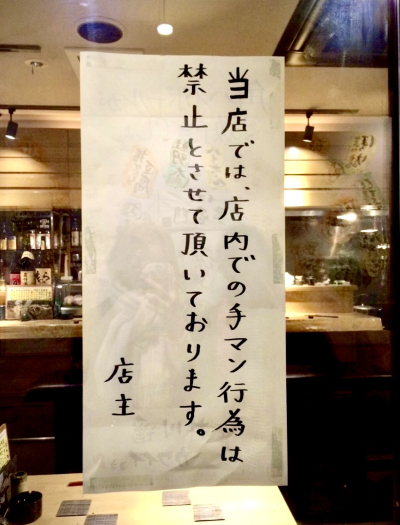 当店では、店内での手マン行為は
禁止とさせて頂いております。
店主